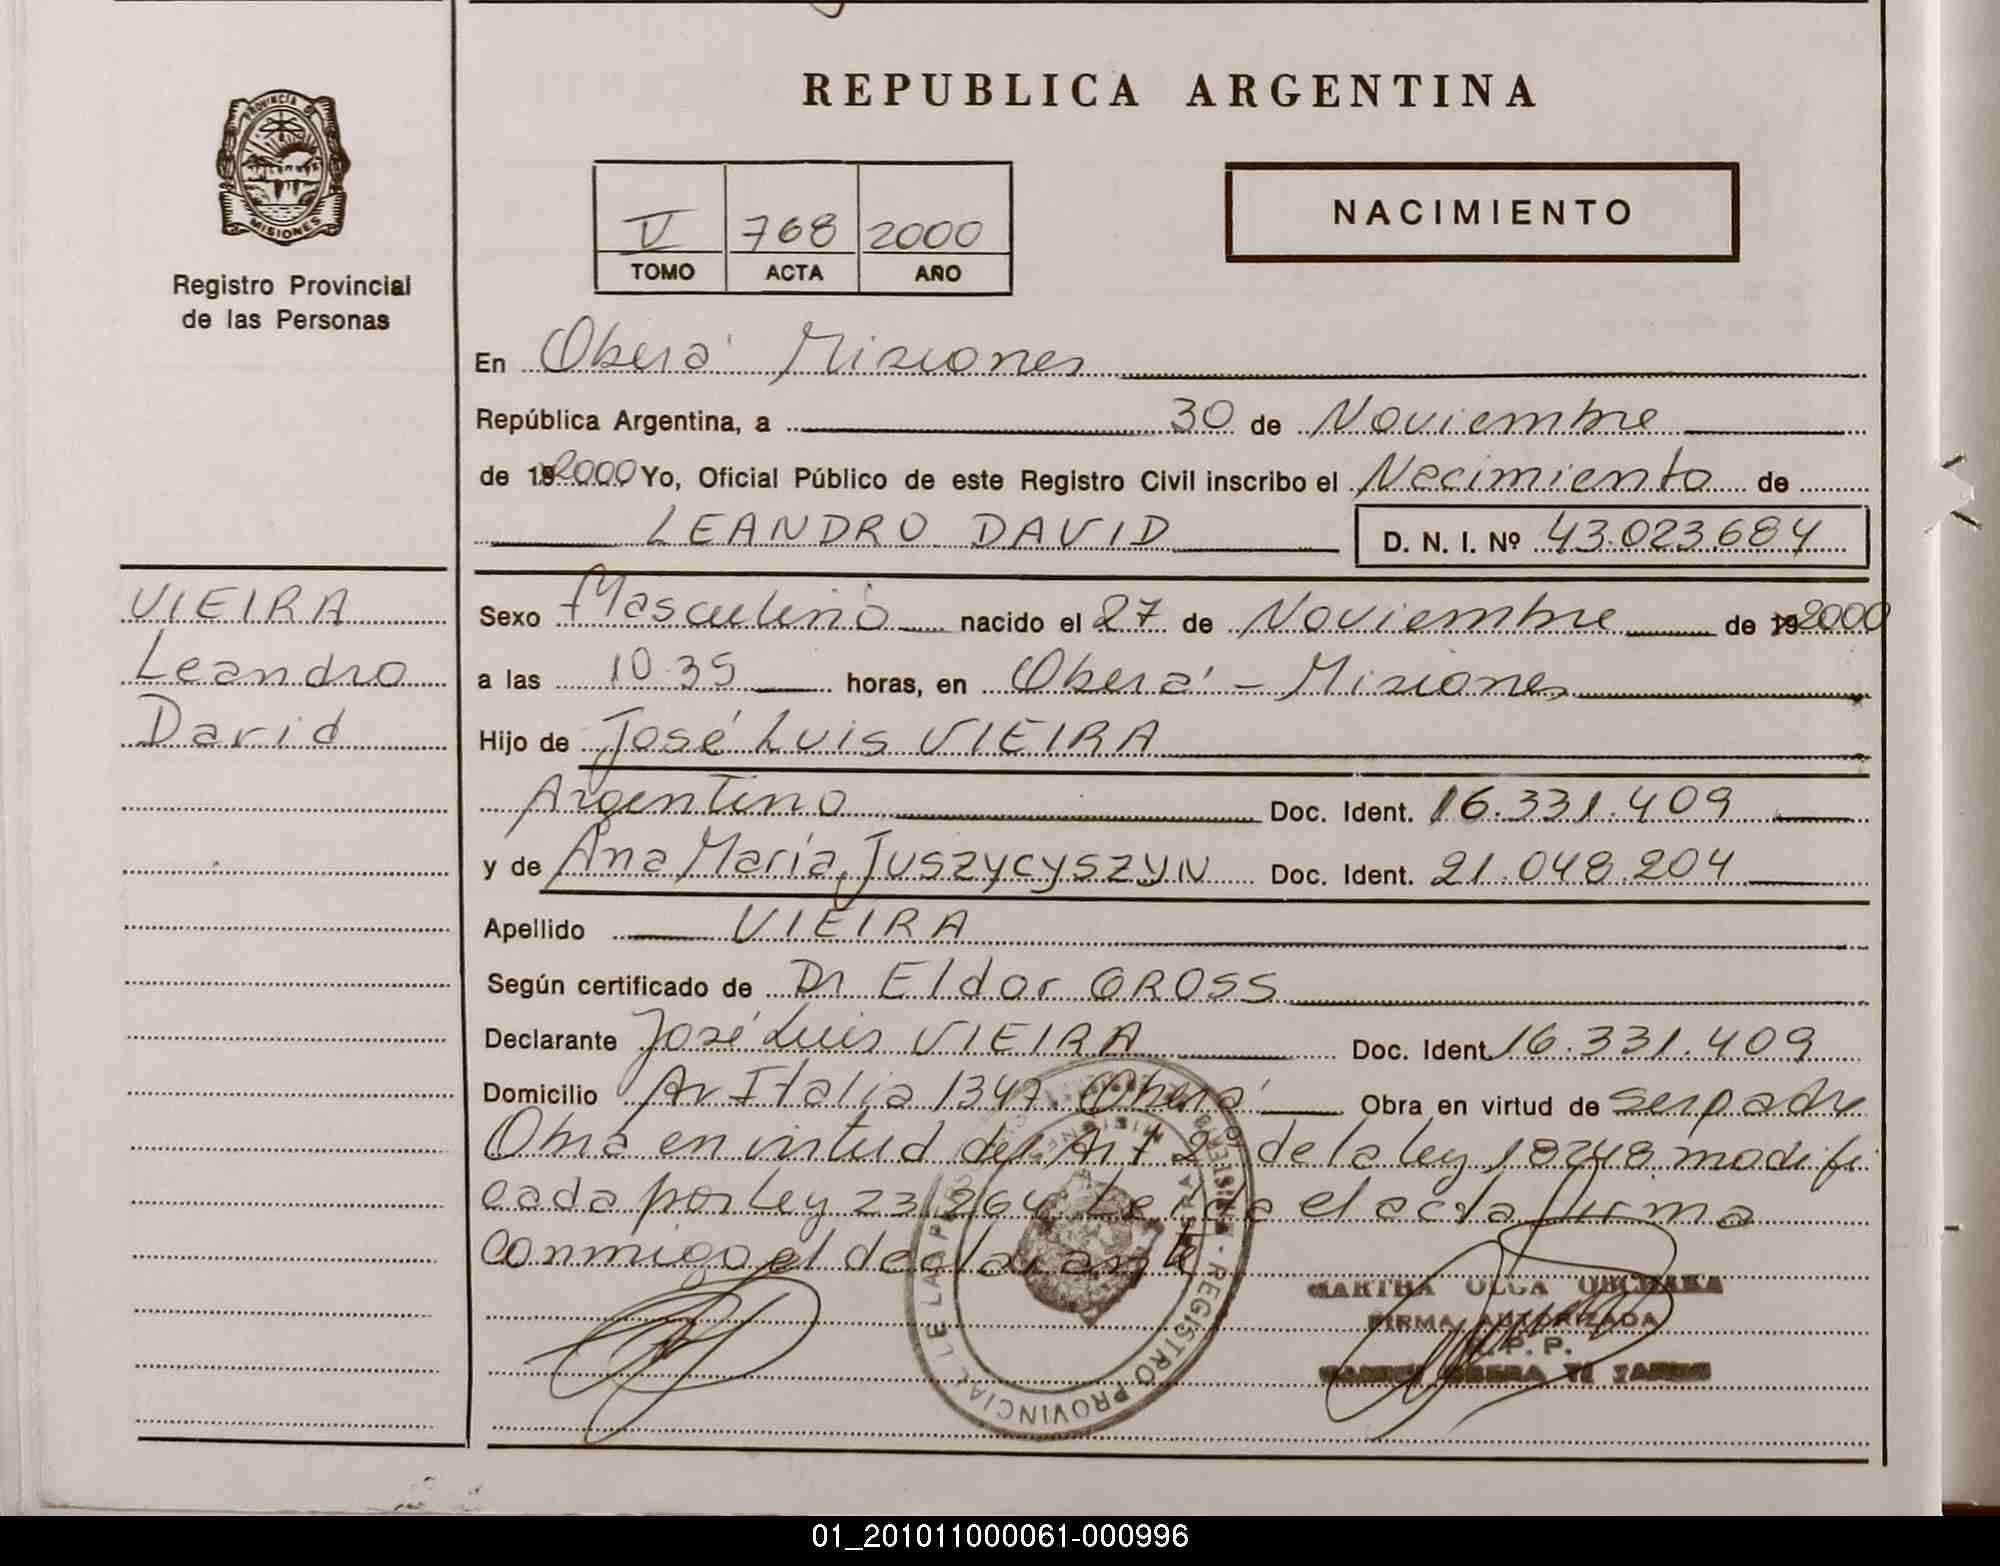 REPUBLICA ARGENTINA
PROVINCIA DE
MISIONES
Registro Provincial
de las Personas
V 768 2000
TOMO ACTA AÑO
NACIMIENTO
En Oberá Misiones
República Argentina, a 30 de Noviembre
de 19 2000 Yo, Oficial Público de este Registro Civil inscribo el Nacimiento de
LEANDRO DAVID D. N. I. Nº 43.023.684
VIEIRA
Leandro
David
Sexo Masculino nacido el 27 de Noviembre de 19 2000
a las 10.35 horas, en Oberá - Misiones
Hijo de José Luis VIEIRA
Argentino Doc. Ident. 16.331.409
y de Ana María JUSZYCYSZYN Doc. Ident. 21.048.204
Apellido VIEIRA
Según certificado de Dr Eldor GROSS
Declarante José Luis VIEIRA Doc. Ident. 16.331.409
Domicilio Av Italia 1347 Oberá Obra en virtud de ser padre
Obra en virtud del Art 2º de la ley 18248 modifi
cada por ley 23.264. Leida el acta firma
conmigo el declarante
REGISTRO PROVINCIAL DE LAS
MARTHA OLGA
FIRMA AUTORIZADA
R.P.P.
01_201011000061-000996